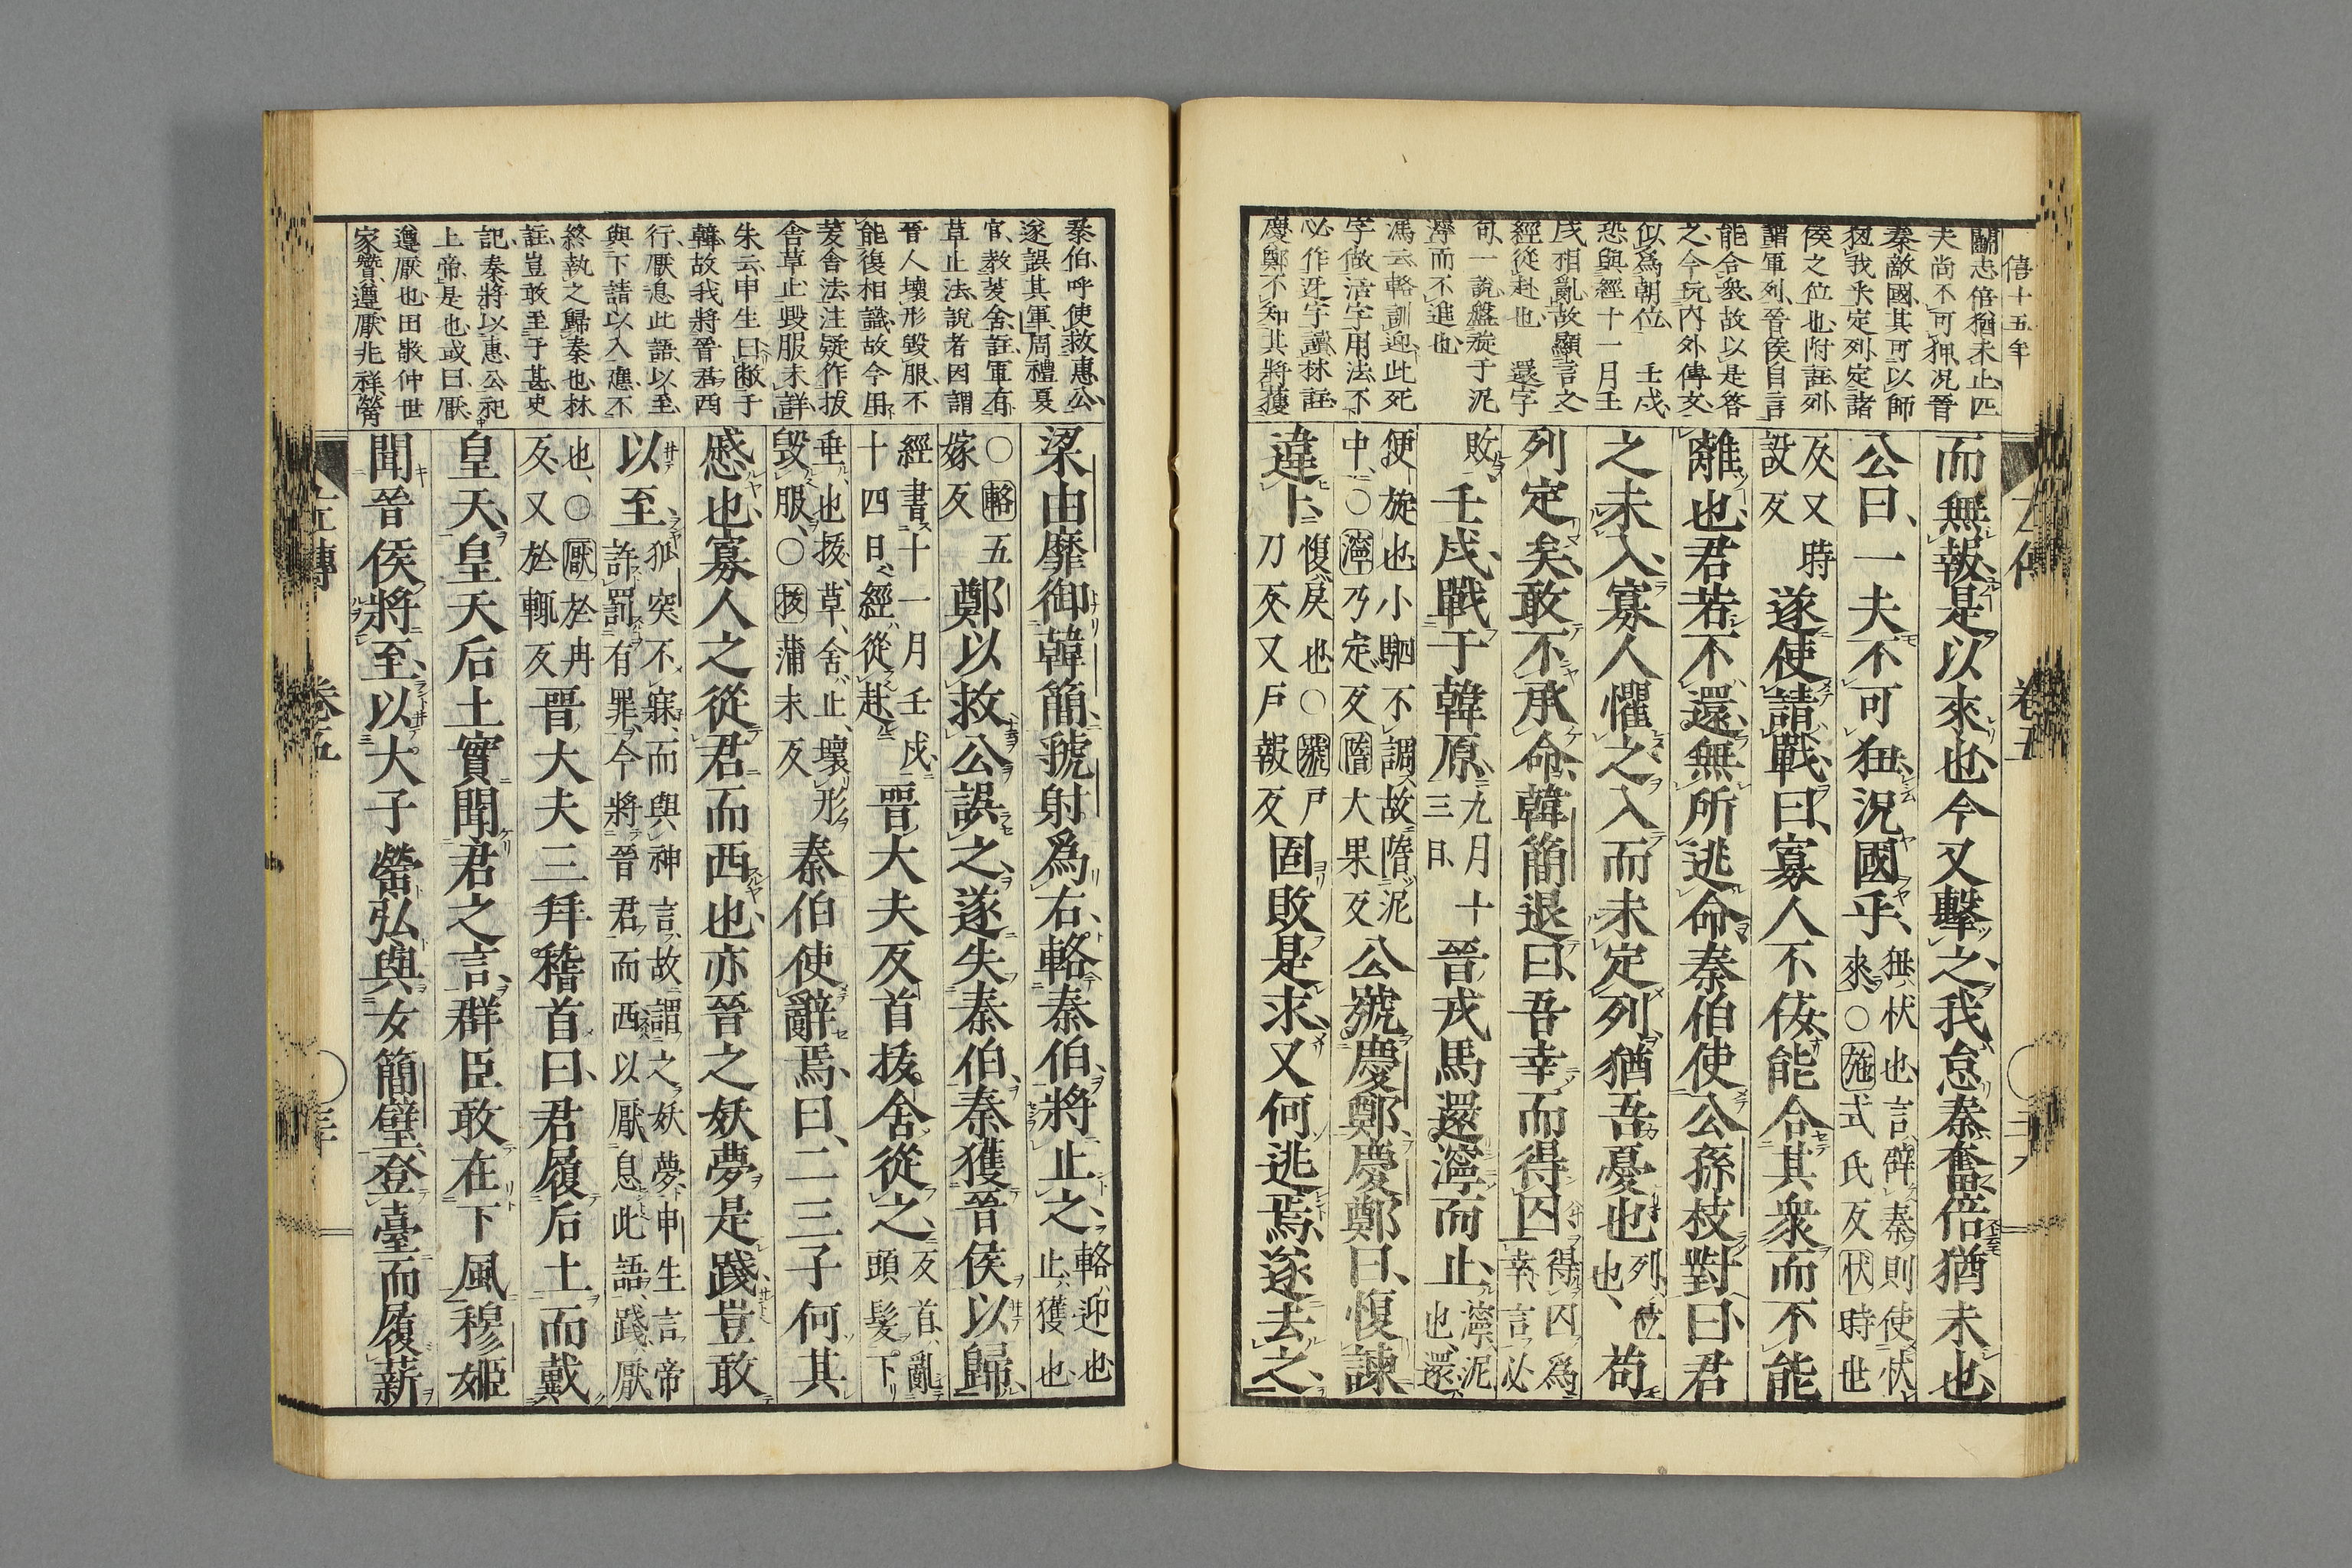 僖十五年
鬭志倍猶未止四
夫尚不可狎況晉
秦敵國其可以師
狃我乎定列定諸
侯之位也附註列
謂軍列晉侯自言
能合衆故以是答
之今玩內外傳文
似爲朝位　壬戌
恐與經十一月壬
戌相亂故顯言之
經從赴也　還字
句一說盤旋于泥
濘而不進也
馮云輅訓迎此死
字做活字用法不
必作迓字讀林註
慶鄭不知其將獲
卷五
而無報是以來也今又擊之我怠秦奮倍猶未也
公曰一夫不可狃況國乎狃忕也言辟秦則使忕
來○施式氏反忕時世
反又時
設反
遂使請戰曰寡人不佞能合其衆而不能
離也君若不還無所逃命秦伯使公孫枝對曰君
之未入寡人懼之入而未定列猶吾憂也列位
也苟
列定矣敢不承命韓簡退曰吾幸而得囚得囚爲
幸言必
敗壬戌戰于韓原九月十
三日晉戎馬還濘而止濘泥
也還
便旋也小駟不調故隋泥
中○濘乃定反隋大果反公號慶鄭慶鄭曰愎諫
違卜愎戾也○號戶
刀反又戶報反固敗是求又何逃焉遂去之
秦伯呼使救惠公
遂誤其軍周禮夏
官教茇舍註軍有
草止法說者因謂
晉人壞形毀服不
能復相識故今用
茇舍法注疑作拔
舍草止毀服未詳
朱云申生曰敝于
韓故我將晉君西
行厭息此語以至
與下請以入應不
終執之歸秦也林
註豈敢至于甚史
記秦將以惠公祀
上帝是也或曰厭
遵厭也田敬仲世
家贊遵厭兆祥
梁由靡御韓簡虢射爲右輅秦伯將止之輅迎也
止獲也
○輅五
嫁反鄭以救公誤之遂失秦伯秦獲晉侯以歸
經書十一月壬戌
十四日經從赴晉大夫反首拔舍從之反首亂
頭髮下
垂也拔草舍止壞形
毀服○拔蒲末反秦伯使辭焉曰二三子何其
慼也寡人之從君而西也亦晉之妖夢是踐豈敢
以至狐突不寐而與神言故謂之妖夢申生言帝
許罰有罪今將晉君而西以厭息此語踐厭
也○厭於冉
反又於輒反晉大夫三拜稽首曰君履后土而戴
皇天皇天后土實聞君之言群臣敢在下風穆姬
聞晉侯將至以大子罃弘與女簡璧登臺而履薪
左傳　卷五